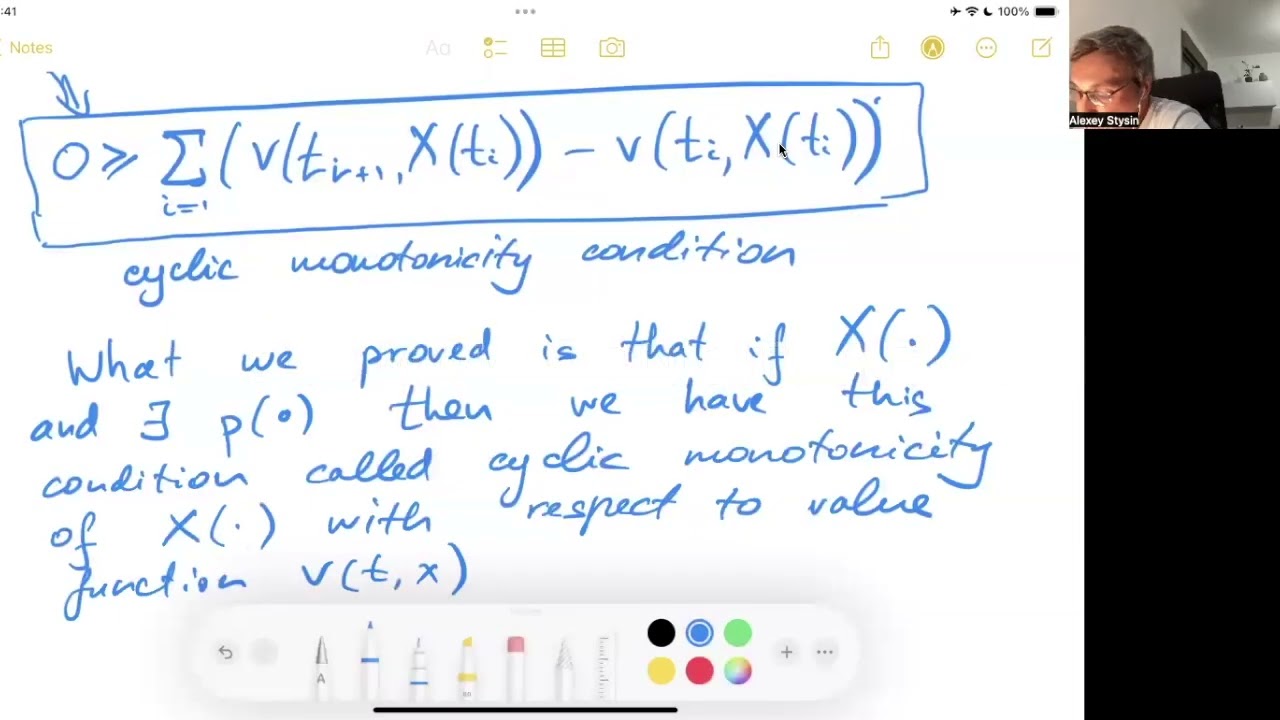 :41
100%
Notes
Aa
Alexey Stysin
0 ≥ ∑ i=1 ( v(t_{i+1}, X(t_i)) − v(t_i, X(t_i)) )
cyclic monotonicity condition
What we proved is that if X(·)
and ∃ p(·) then we have this
condition called cyclic monotonicity
of X(·) with respect to value
function v(t, x)
A
80